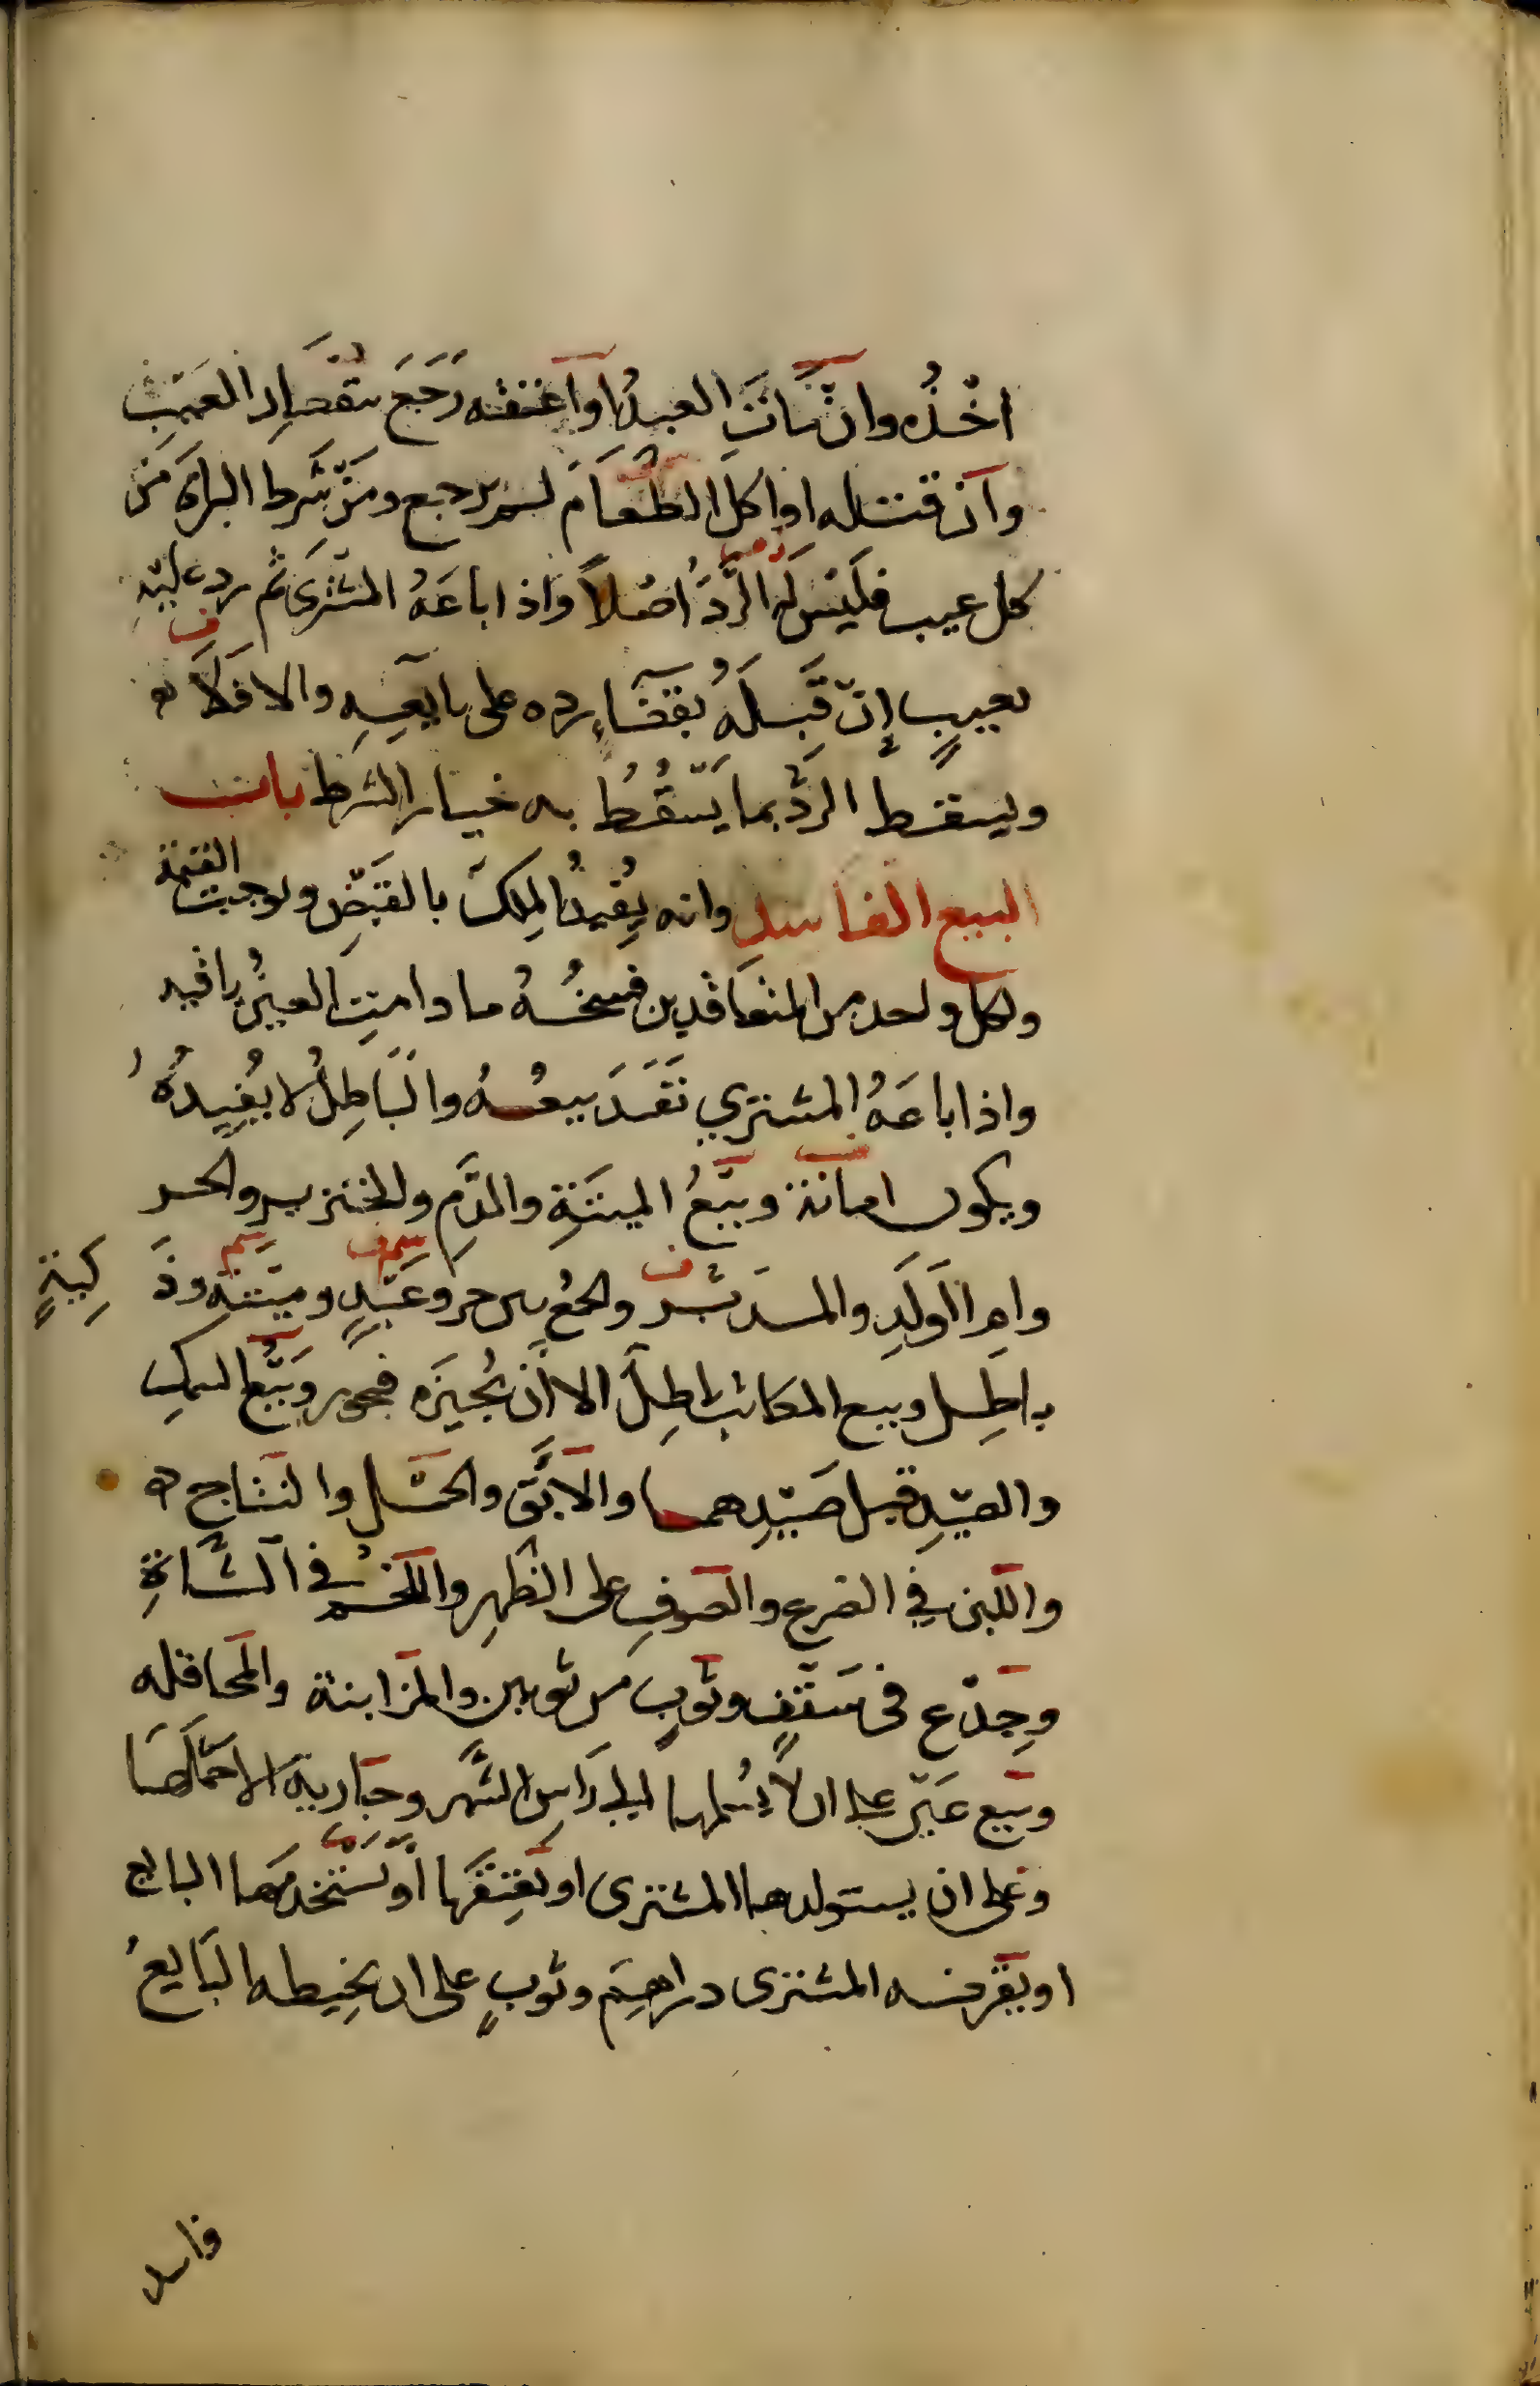 اخْذُه وانْ مَاتَ العبدُ او اَعْتقه رَجَعَ بنُقصَانِ العَيبِ
وَان قتله او اكل الطَّعَامَ لم يرجع ومَنْ شَرط البراةَ مَن
كل عيب فلَيْسَ لَهُ الرَّدُّ اصْلاً وَاذا باعَهُ المشْتَرى ثم رد عليْهِ
بعيبٍ إنْ قَبِلَهُ بقَضَاءٍ رده على بايعِهِ والا فَلاَ
ويسقط الردُّ بما يَسْقُطُ به خيار الشرط بابُ
البيع الفاسد وانه يُفيدُ المِلكَ بالقَبْضِ ويوجب القيمة
ولكل واحد من المتعاقدين فسخُهُ ما دامتِ العينُ باقيه
واذا باعَهُ المشتري نَفَذَ بيعُهُ والبَاطِلُ لا يُفِيدُهُ
ويكون امانة وبَيْعُ الميتَةِ والدَّمِ والخنزير والحر
وام الوَلَدِ والمدبَّر والجمْعُ بين حر وعَبْدٍ وميْتَةٍ وذَكِيَّةٍ
باطِل وبيع المكاتب باطِلٌ الا اَنْ يُجيزَه فيجوز وبَيْعُ السمكِ
والصيْدِ قبل صَيْدِهما والآبق والحَمْل والنتاج
واللبن في الضرع والصوفِ على الظهرِ واللحْمُ في الشَّاةِ
وجِذْعٍ في سَقْفٍ وثوبٍ من ثوبين والمزابنة والمحاقله
وبَيع عَيْنٍ على ان لاَ يُسَلمها الى رَاسِ الشَّهر وجَاريةٍ الا حَمْلَهَا
وعلى ان يستولدها المشترى او يُعْتِقَهَا اَوْ يَسْتَخْدِمَها البايع
او يقرضه المشترى دراهِمَ وثوبٍ على ان يخِيطه البَايعُ
فاسد